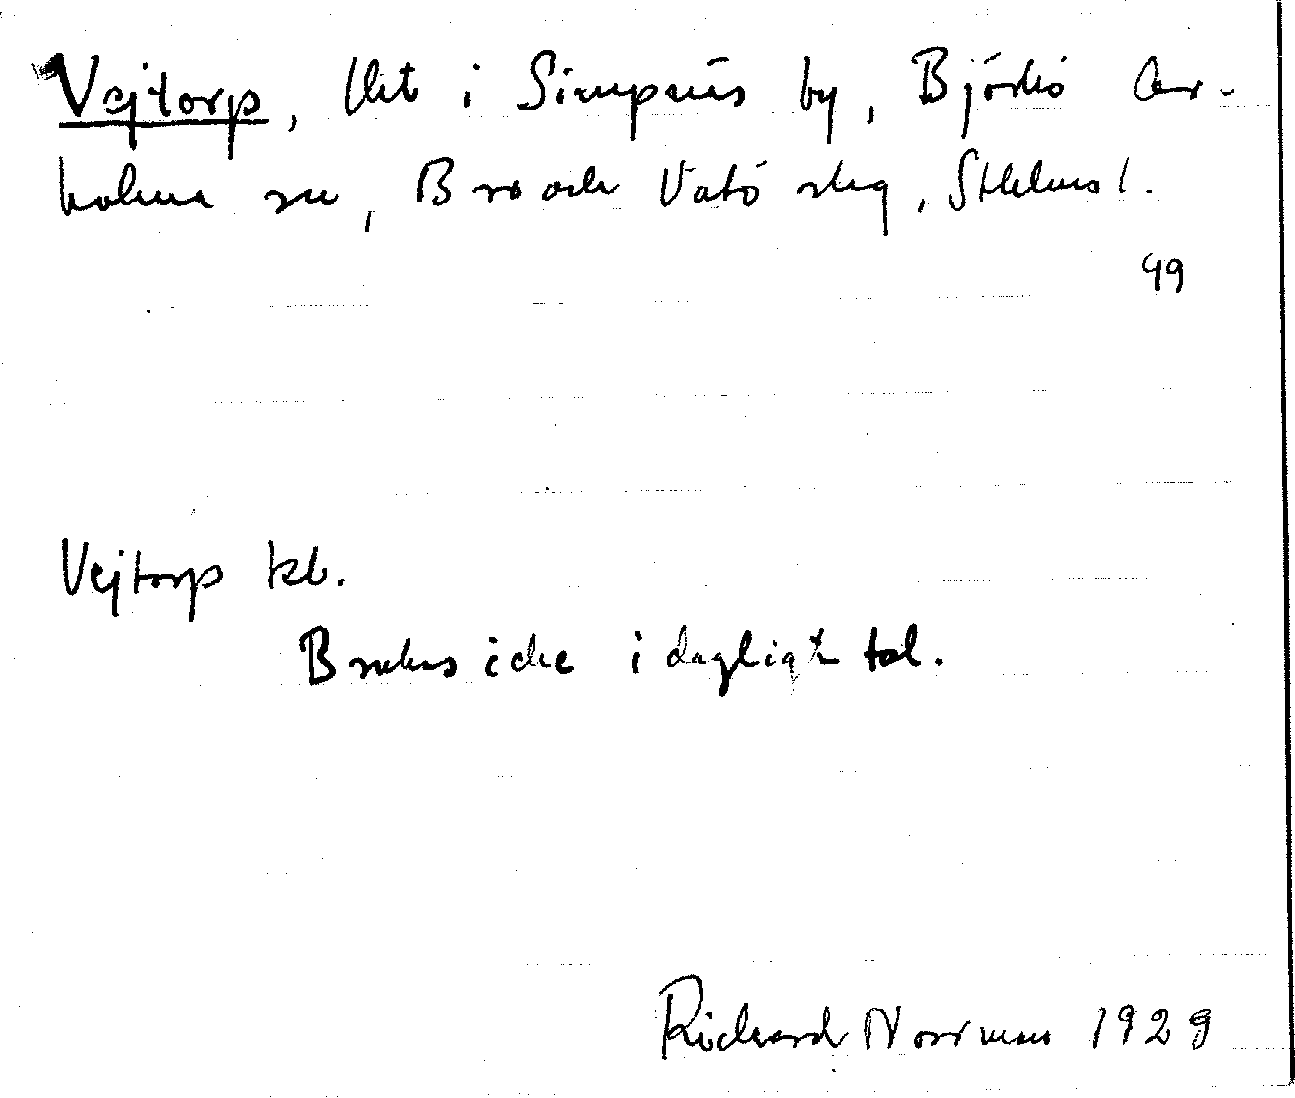 Vejtorp, Utt i Simpnäs by, Björkö Ar-
holma sn, Bro och Vätö sklg, Sthlms l.
49
Vejtorp kb.
Brukas icke i dagligt tal.
Richard Norrman 1929